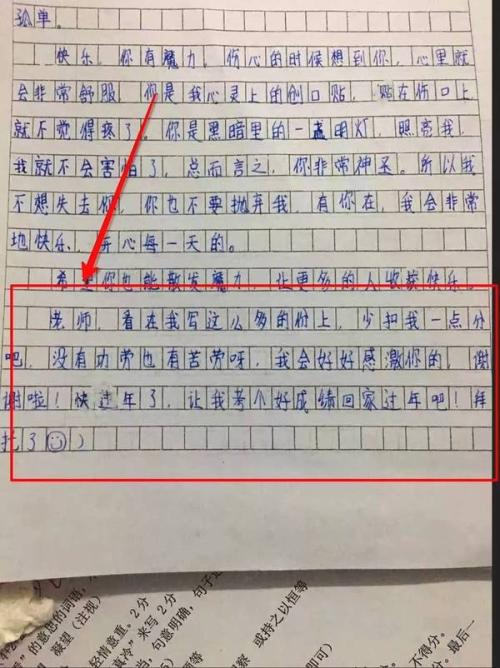 孤单。
快乐，你有魔力，伤心的时候想到你，心里就
会非常舒服，你是我心灵上的创口贴，贴在伤口上
就不觉得疼了。你是黑暗里的一盏明灯，照亮我，
我就不会害怕了，总而言之，你非常神圣。所以我
不想失去你，你也不要抛弃我，有你在，我会非常
地快乐，开心每一天的。
希望你也能散发魔力，让更多的人收获快乐。
老师，看在我写这么多的份上，少扣我一点分
吧，没有功劳也有苦劳呀，我会好好感激你的，谢
谢啦！快过年了，让我考个好成绩回家过年吧！拜
托了）
的意思的词语，
凝望（注视）
轻情意重。2分
真冷”来写 2分
当，句意明确，句子
或持之以恒等
不得分。
最后一